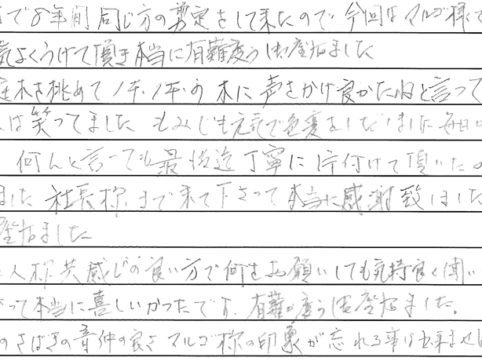 で8年間同じ方の剪定をして来たので今回はマルゴ様で
気よくうけて頂き本当に有難度うし御座居ました
庭木を眺めて 木に声をかけ良かたねと言って
は笑ってました もみじも元気で
何んと言っても最後迄丁寧に片付けて頂いたの
ました 社長様まで来て下さって本当に感謝致しました
座居ました
人様共感じの良い方で何をお願いしても気持良く聞い
って本当に喜しいかったです。有難度う御座居ました。
のてきぱきの音 仲の良さ マルゴ様の印象が忘れる事は出来ませ